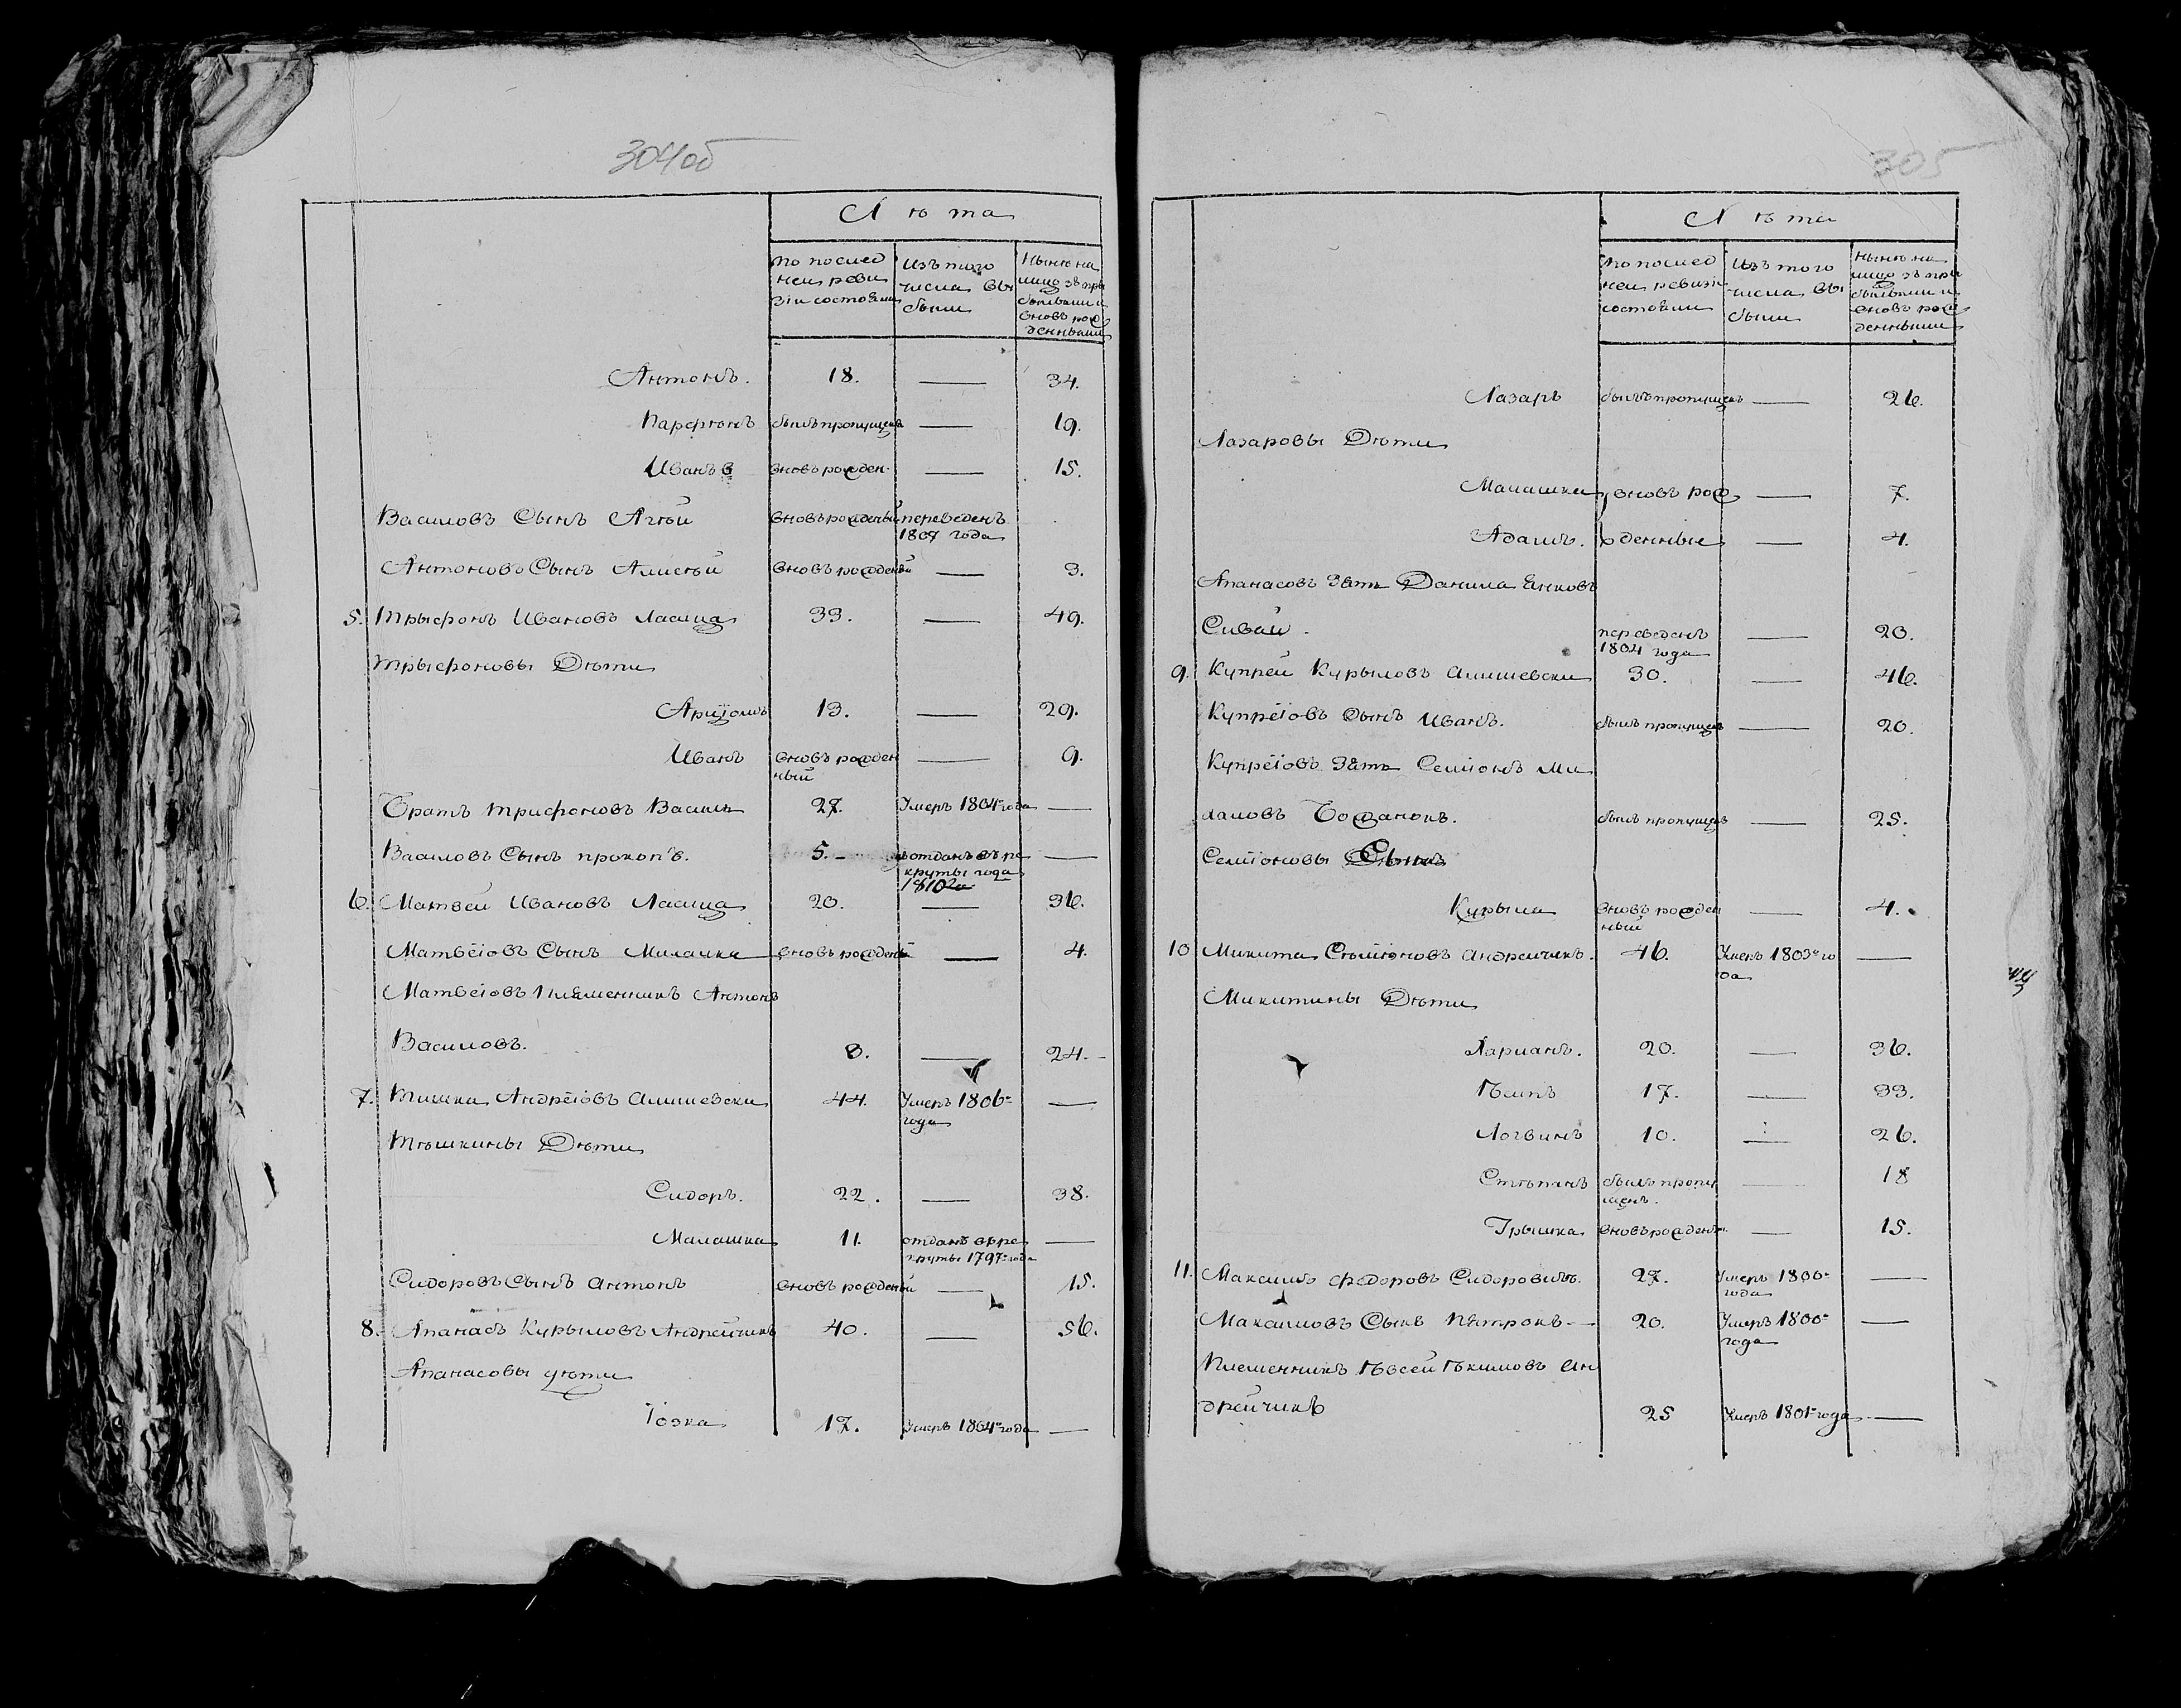 304об
Лѣта
По послед
ней реви
зіи состояли
Изъ того
числа вы
были
Нынѣ на
лицо зъ при
былыми и
вновь рож
денными
Антонъ. 18. — 34.
Парфѣнъ былъ пропущенъ — 19.
Иванъ вновь рожден. — 15.
Василовъ Сынъ Агѣй вновь рожденый переведенъ
1804 года
Антоновъ Сынъ Алисѣй вновь рожденый — 3.
5. Трыфонъ Ивановъ Ласица 33. — 49.
Трыфоновы Дѣти
Арціомъ 13. — 29.
Иванъ вновь рожден — 9.
ный
Братъ Трифоновъ Василь 27. Умеръ 1804 года —
Василовъ Сынъ прокопъ. 5. отданъ въ ре —
круты года
1810
6. Матвей Ивановъ Ласица 20. — 36.
Матвеіовъ Сынъ Милашка вновь рожденый — 4.
Матвеіовъ племенникъ Антонъ
Василовъ. 8. — 24.
7. Тишка Андреіовъ Алишевски 44. Умеръ 1806
года —
Тишкины Дѣти
Сидоръ. 22. — 38.
Малашка 11. отданъ в ре —
круты 1797 года
Сидоровъ Сынъ Антонъ вновь рожденый — 15.
8. Апанасъ Курыловъ Андрейчикъ 40. — 56.
Апанасовы дѣти
Іозка 17. Умеръ 1804 года —
305
Лѣта
По послед
ней ревизіи
состояли
Изъ того
числа вы
были
Нынѣ на
лицо зъ при
былыми и
вновь рож
денными
Лазаръ былъ пропущенъ — 26.
Лазаровы Дѣти
Малашка вновь рож — 7.
Адамъ. денные — 4.
Апанасовъ Зять Данила Янковъ
Сивай. переведенъ — 20.
1804 года
9. Купрей Курыловъ Алишевски 30. — 46.
Купреіовъ Сынъ Иванъ. былъ пропущенъ — 20.
Купреіовъ Зять Семіонъ Ми
халовъ Божанокъ. былъ пропущенъ — 25.
Семіоновы Сынъ
Курыла вновь рожден — 4.
ный
10 Микита Сѣміоновъ Андрейчикъ. 46. Умеръ 1803 го —
да
Микитины Дѣти
Ларианъ. 20. — 36.
17. — 33.
Логвинъ 10. — 26.
Стѣпанъ былъ пропу — 18
щенъ.
Грышка вновь рожденый — 15.
11. Максимъ Федоровъ Сидоровичъ. 27. Умеръ 1800 —
года
Максимовъ Сынъ Пятрокъ — 20. Умеръ 1800 —
года
Племенникъ Ан
дрейчикъ 25 Умеръ 1801 года —